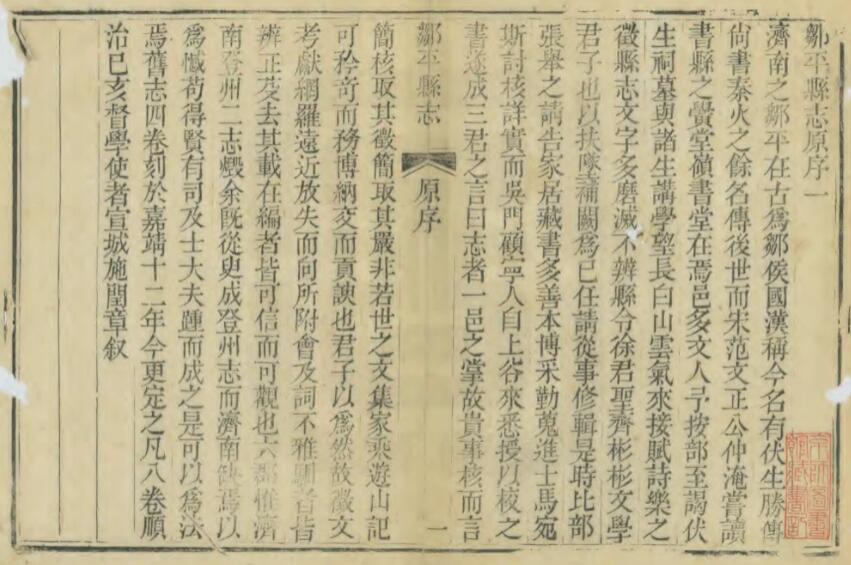 鄒平縣志原序一
濟南之鄒平在古爲鄒侯國漢稱今名有伏生勝傳
尙書秦火之餘名傳後世而宋范文正公仲淹嘗讀
書縣之黌堂嶺書堂在焉邑多文人予按部至謁伏
生祠墓與諸生講學望長白山雲氣來接賦詩樂之
徵縣志文字多磨滅不辨縣令徐君聖齊彬彬文學
君子也以扶墜補闕爲已任請從事修輯是時比部
張舉之請告家居藏書多善本博采勤蒐進士馬宛
斯討核詳實而吳門顧寧人自上谷來悉授以校之
書遂成三君之言曰志者一邑之掌故貴事核而言
鄒平縣志
原序
一
簡核取其徵簡取其嚴非若世之文集家乘遊山記
可矜奇而務博納交而貢諛也君子以爲然故徵文
考獻網羅遠近放失而向所附會及詞不雅馴者皆
辨正芟去其載在編者皆可信而可觀也六郡惟濟
南登州二志燬余旣從臾成登州志而濟南缺焉以
爲憾苟得賢有司及士大夫踵而成之是可以爲法
焉舊志四卷刻於嘉靖十二年今更定之凡八卷順
治己亥督學使者宣城施閏章叙